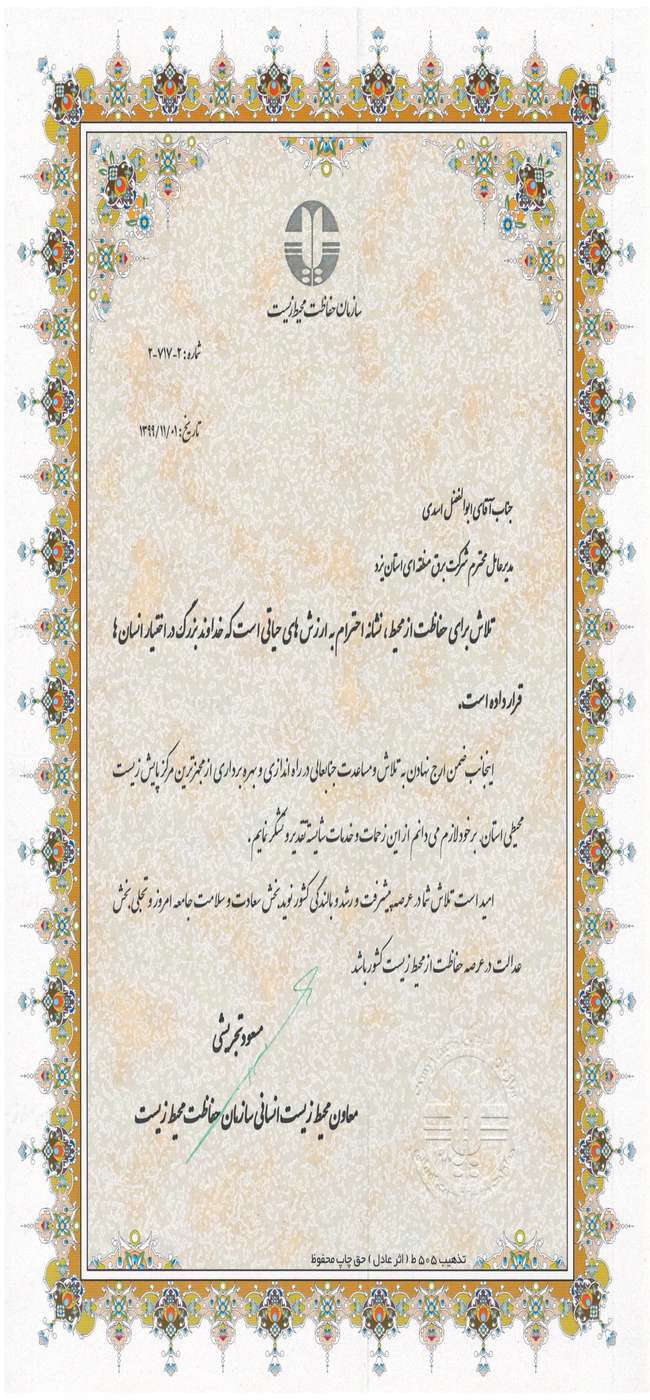 سازمان حفاظت محیط زیست
شماره: ۲-۷۱۷-۲
تاریخ: ۱۳۹۹/۱۱/۰۱
جناب آقای ابوالفضل اسدی
مدیرعامل محترم شرکت برق منطقه ای استان یزد
تلاش برای حفاظت از محیط، نشانه احترام به ارزش های حیاتی است که خداوند بزرگ در اختیار انسان ها
قرار داده است.
اینجانب ضمن ارج نهادن به تلاش و مساعدت جنابعالی در راه اندازی و بهره برداری از مجهزترین مرکز پایش زیست
محیطی استان، برخود لازم می دانم از این زحمات و خدمات شایسته تقدیر و تشکر نمایم.
امید است تلاش شما در عرصه پیشرفت و رشد و بالندگی کشور نوید بخش سعادت و سلامت جامعه امروز و تجلی بخش
عدالت در عرصه حفاظت از محیط زیست کشور باشد
مسعود تجریشی
معاون محیط زیست انسانی سازمان حفاظت محیط زیست
تذهیب ۵۰۵ ط ( اثر عادل ) حق چاپ محفوظ